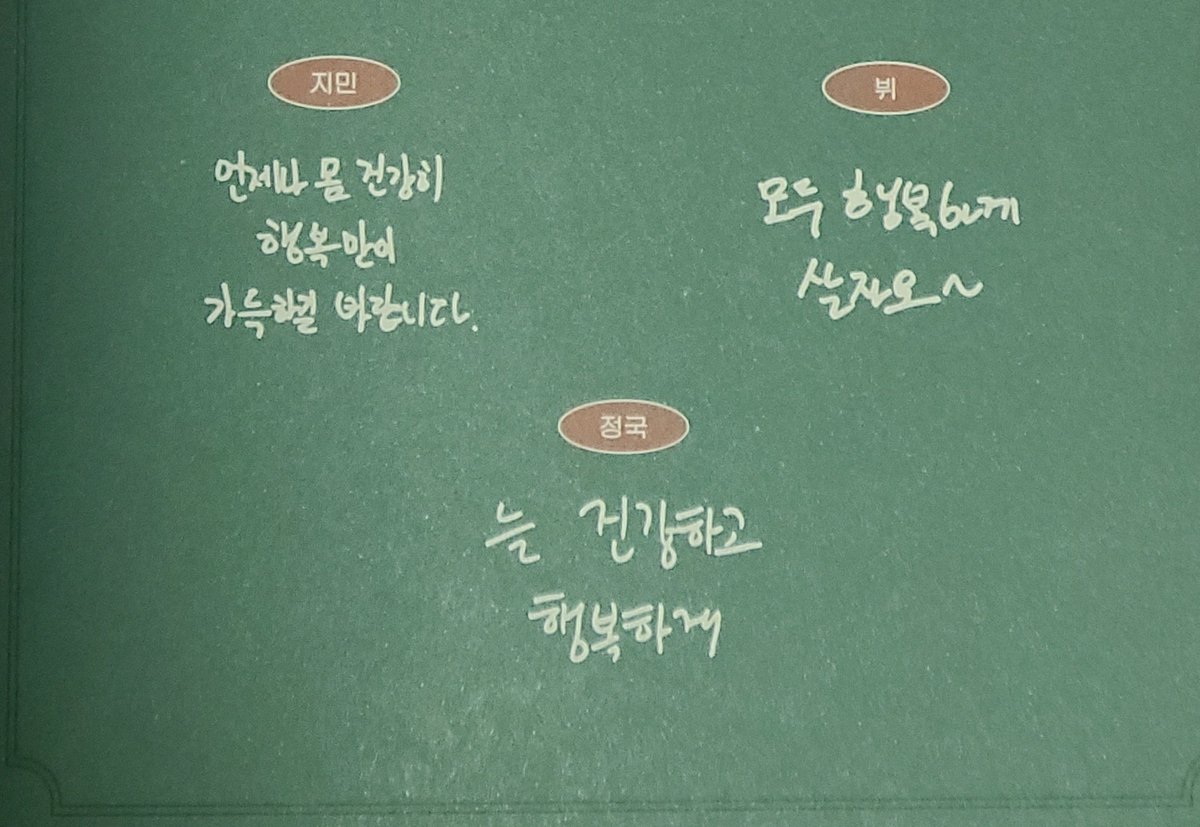 지민
언제나 몸 건강히
행복만이
가득하길 바랍니다.
뷔
모두 행복하게
살자오~
정국
늘 건강하고
행복하게